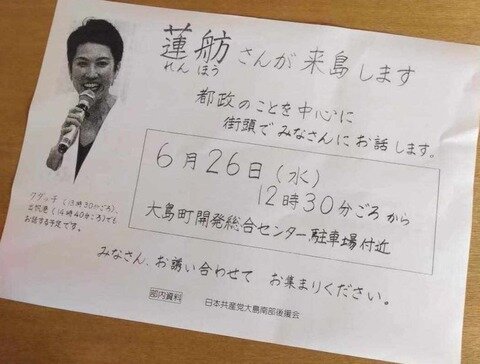 蓮舫さんが来島します
れんほう
都政のことを中心に
街頭でみなさんにお話します。
6月26日(水)
12時30分ごろから
大島町開発総合センター駐車場付近
クダッチ(13時30分ごろ)、
出帆港(14時40分ころ)でも
お話する予定です。
みなさん、お誘い合わせて お集まりください。
部内資料 日本共産党大島南部後援会